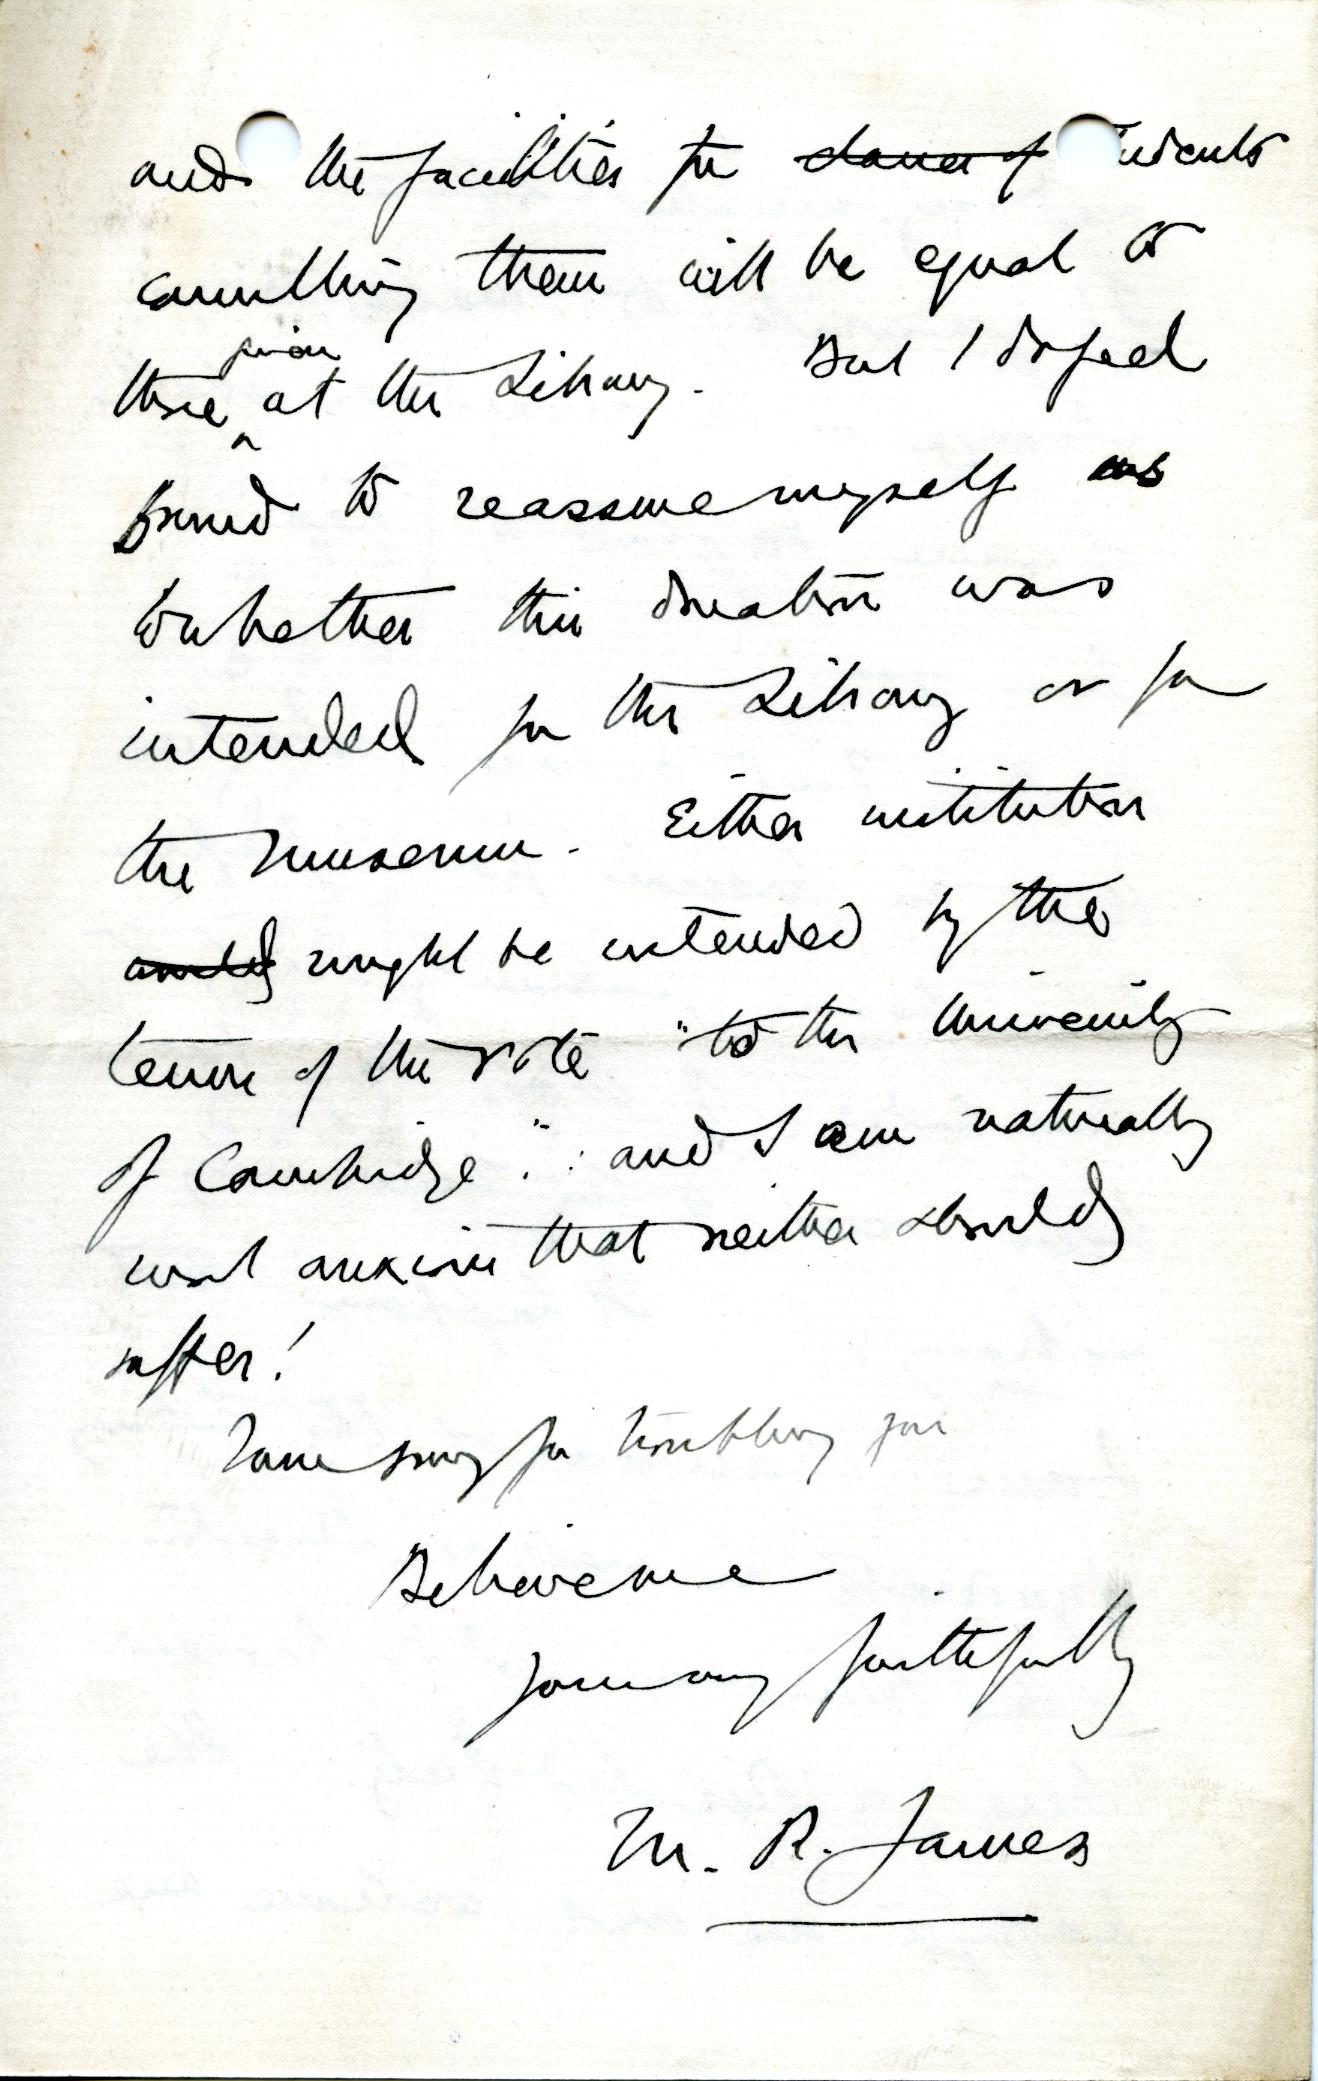 and the facilities for classes of students
consulting them will be equal to
given
those at the Library. But I do feel
bound to reassure myself as
to whether this donation was
intended for the Library or for
the Museum. Either institution
might be intended by the
terms of the vote "to the University
of Cambridge": and I am naturally
most anxious that neither should
suffer!
I am sorry for troubling you
Believe me
Yours very faithfully
M. R. James